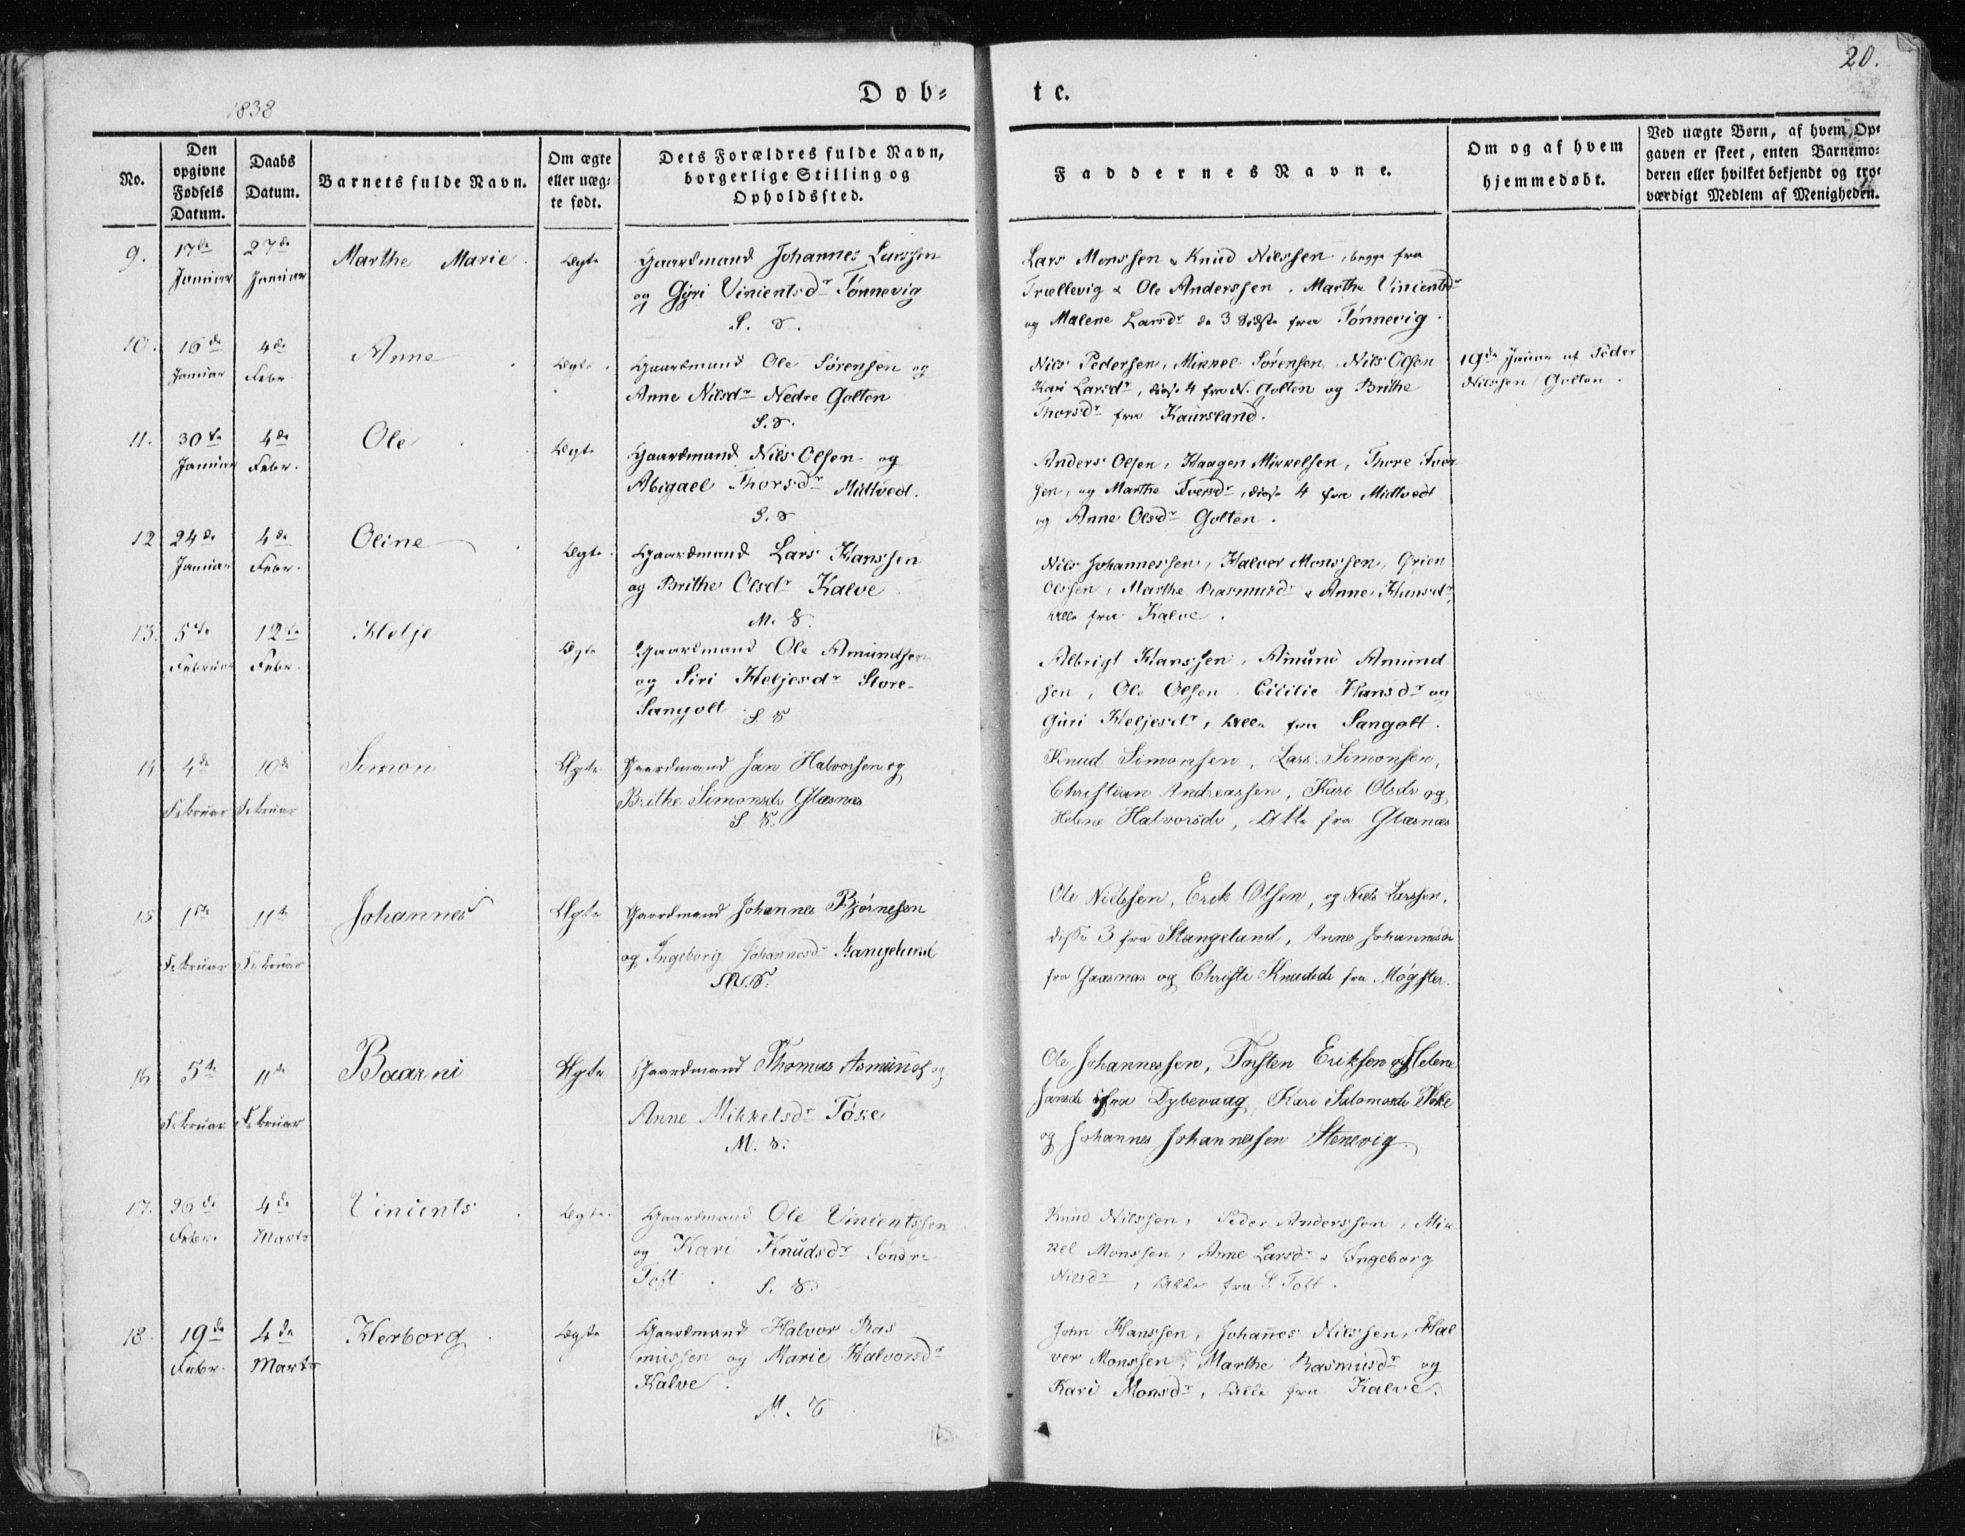 20.
1838
Døb-
te.
No.
Den opgivne Fødsels Datum.
Daabs Datum.
Barnets fulde Navn.
Om ægte eller uæg- te født.
Dets Forældres fulde Navn, borgerlige Stilling og Opholdssted.
Faddernes Navne.
Om og af hvem hjemmedøbt.
Ved uægte Børn, af hvem, Op- gaven er skeet, enten Barnemo- deren eller hvilket bekjendt og tro- værdigt Medlem af Menigheden.
9. 17de Januar 27de Januar Marthe Marie Ægte
Gaardmand Johannes Larssen
og Gyri Vincentsdr Tønnevig
S. S.
Lars Monssen & Knud Nilssen, begge fra
Trællevig & Ole Anderssen, Marthe Vincentsdr
og Malene Larsdr de 3 Sidste fra Tønnevig.
10. 16de Januar 4de Febr. Anne Ægte
Gaardmand Ole Sørensen og
Anne Nilsdr Nedre Golten
S. S.
Nils Pedersen, Mikkel Sørensen, Nils Olsen
Kari Larsdr, disse 4 fra N. Golten og Brithe
Thorsdr fra Kaursland.
19de Januar af Peder
Nilssen Golten.
11. 30te Januar 4de Febr. Ole Ægte
Gaardmand Nils Olsen og
Abigael Thorsdr Midtvedt.
S. S
Anders Olsen, Haagen Mikkelsen, Thore Iver
sen, og Marthe Iversdr, disse 4 fra Midtvedt
og Anne Olsdr Golten.
12 24de Januar 4de Febr. Oline Ægte
Gaardmand Lars Hanssen
og Brithe Olsdr Kalve
M. S.
Nils Johannessen, Halver Monssen,
Olssen, Marthe Rasmusdr & Anne Hansdr,
alle fra Kalve.
13. 5te Februar 12te Febr. Helje Ægte
Gaardmand Ole Amundsen
og Siri Heljesdr Store-
Sangolt.
S. S
Albrigt Hanssen, Amund Amund
sen, Ole Olsen, Cicilie Hansdr og
Guri Heljesdr, alle fra Sangolt.
14 4de Februar 10de Februar Simon Ægte
Gaardmand Jan Halvorsen og
Brithe Simonsdr Glæsnes
S. S.
Knud Simonsen, Lars Simonsen,
Christian Andreassen, Kari Olsdr og
Helene Halvorsdr, Alle fra Glæsnæs
15 1ste Februar 11te Februar Johannes Ægte
Gaardmand Johannes Bjørnesen
og Ingeborg Johannesdr Stangeland
M. S.
Ole Nielssen, Erik Olsen, og Niels Larssen,
disse 3 fra Stangeland, Anne Johannesdr
fra Gaasnæs og Christi Knudsdr fra Møgster.
16 5te Februar 11te Februar Baarni Ægte
Gaardmand Thomas Asmunds og
Anne Mikkelsdr Toke
M. S.
Ole Johannessen, Torsten Eriksen og Helene
Jansdr fra Dybevaag, Kari Salomonsdr Toke
og Johannes Johannessen Stenevig.
17. 26de Febr. 4de Marts Vincents Ægte
Gaardmand Ole Vincentssen
og Kari Knudsdr Søndre
Toft.
S. S.
Knud Nilssen, Peder Anderssen, Mik
kel Monssen, Anne Larsdr & Ingeborg
Nilsdr, alle fra S. Toft.
18. 19de Febr. 4de Marts Herborg Ægte
Gaardmand Halvor Ras
mussen og Marie Halvorsdr
Kalve.
M. S
John Hanssen, Johannes Nilssen, Hal
ver Monssen, Marthe Rasmusdr og
Kari Monsdr, alle fra Kalve.